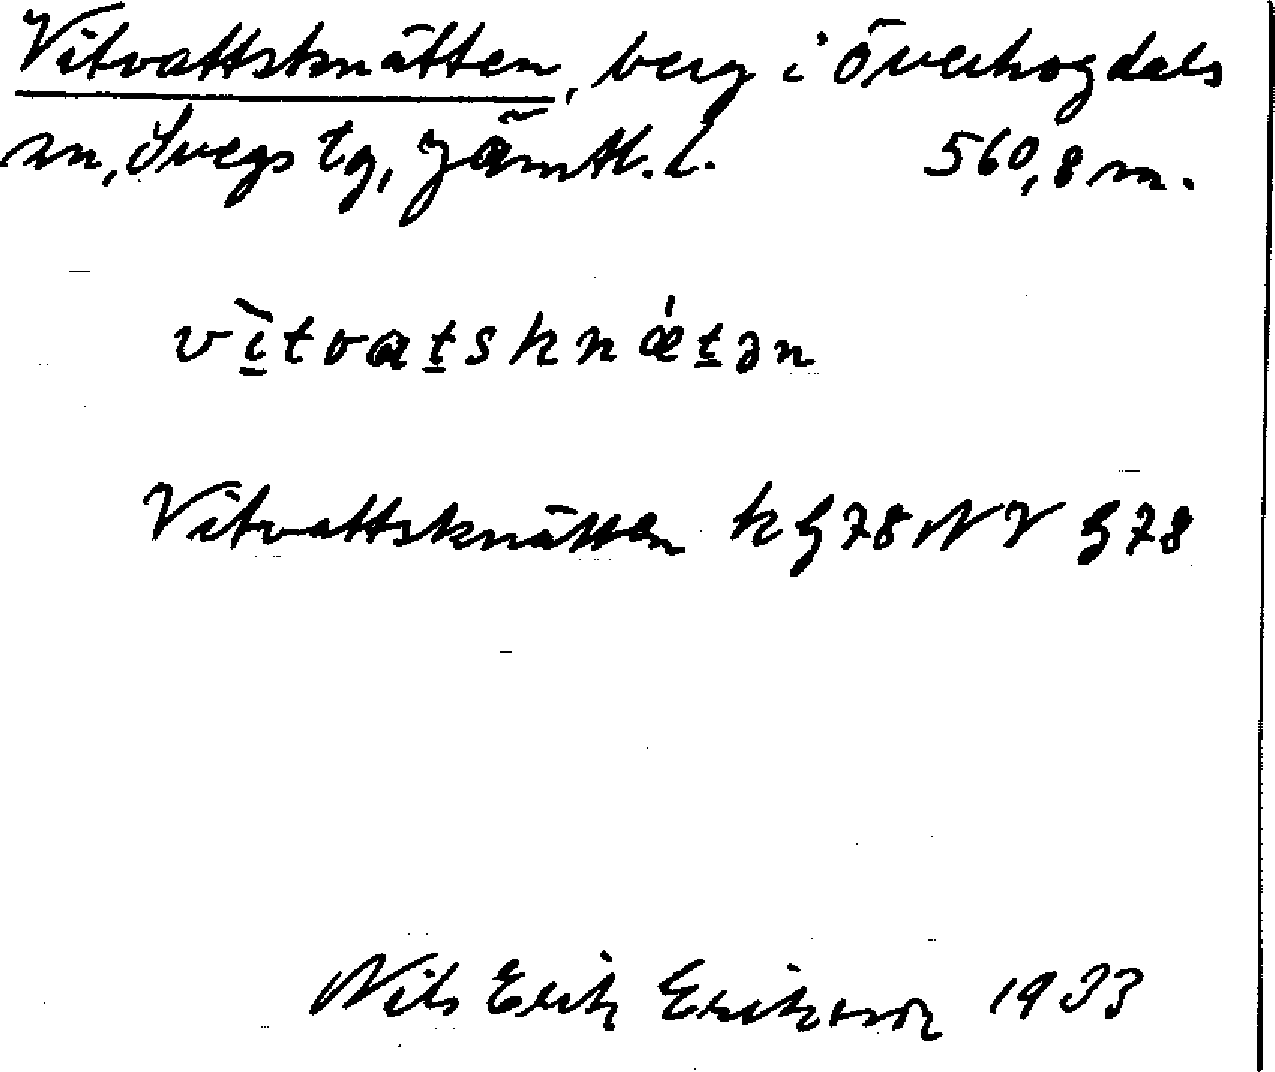 Vitvattsknätten, berg i Överhogdals
sn, Svegs tg, Jämtl. l. 560,8 m.
vìtvatsknǽtən
Vitvattsknätten k G 78 NV G 78
Nils Erik Eriksson 1933